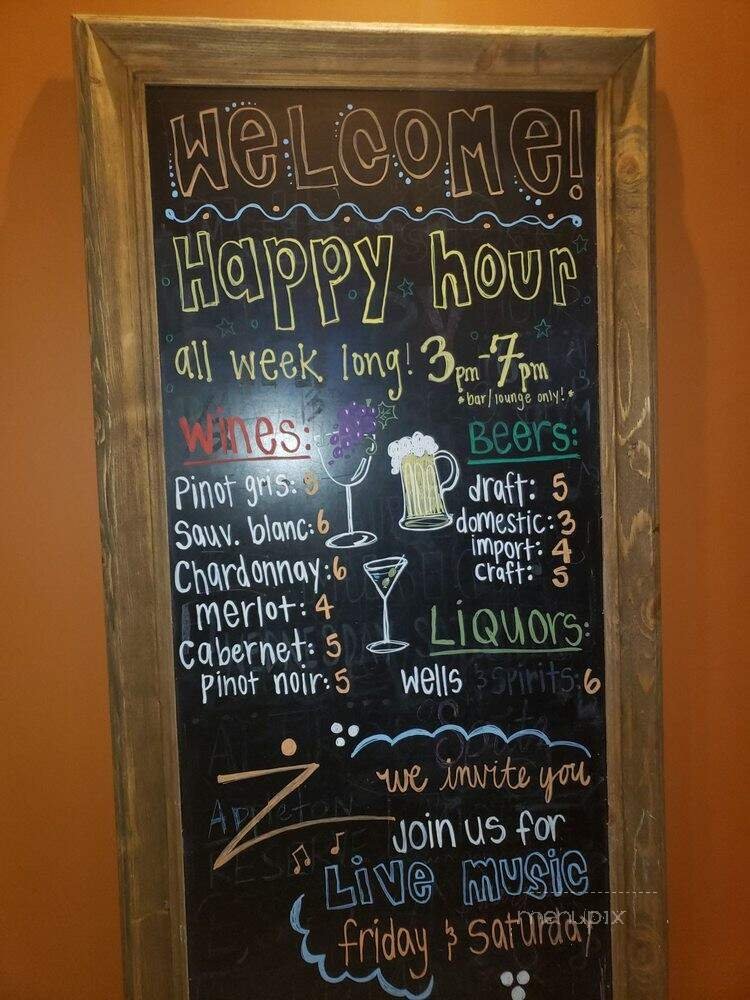 WeLCOMe!
Happy hour
all week long! 3pm-7pm
*bar/lounge only!*
Wines:
Pinot gris:
Sauv. blanc: 6
Chardonnay: 6
merlot: 4
Cabernet: 5
pinot noir: 5
Beers:
draft: 5
domestic: 3
import: 4
craft: 5
LIQUORS:
wells & spirits: 6
Z
we invite you
Join us for
Live music
friday & Saturday
Appleton
RESERVE
menupix